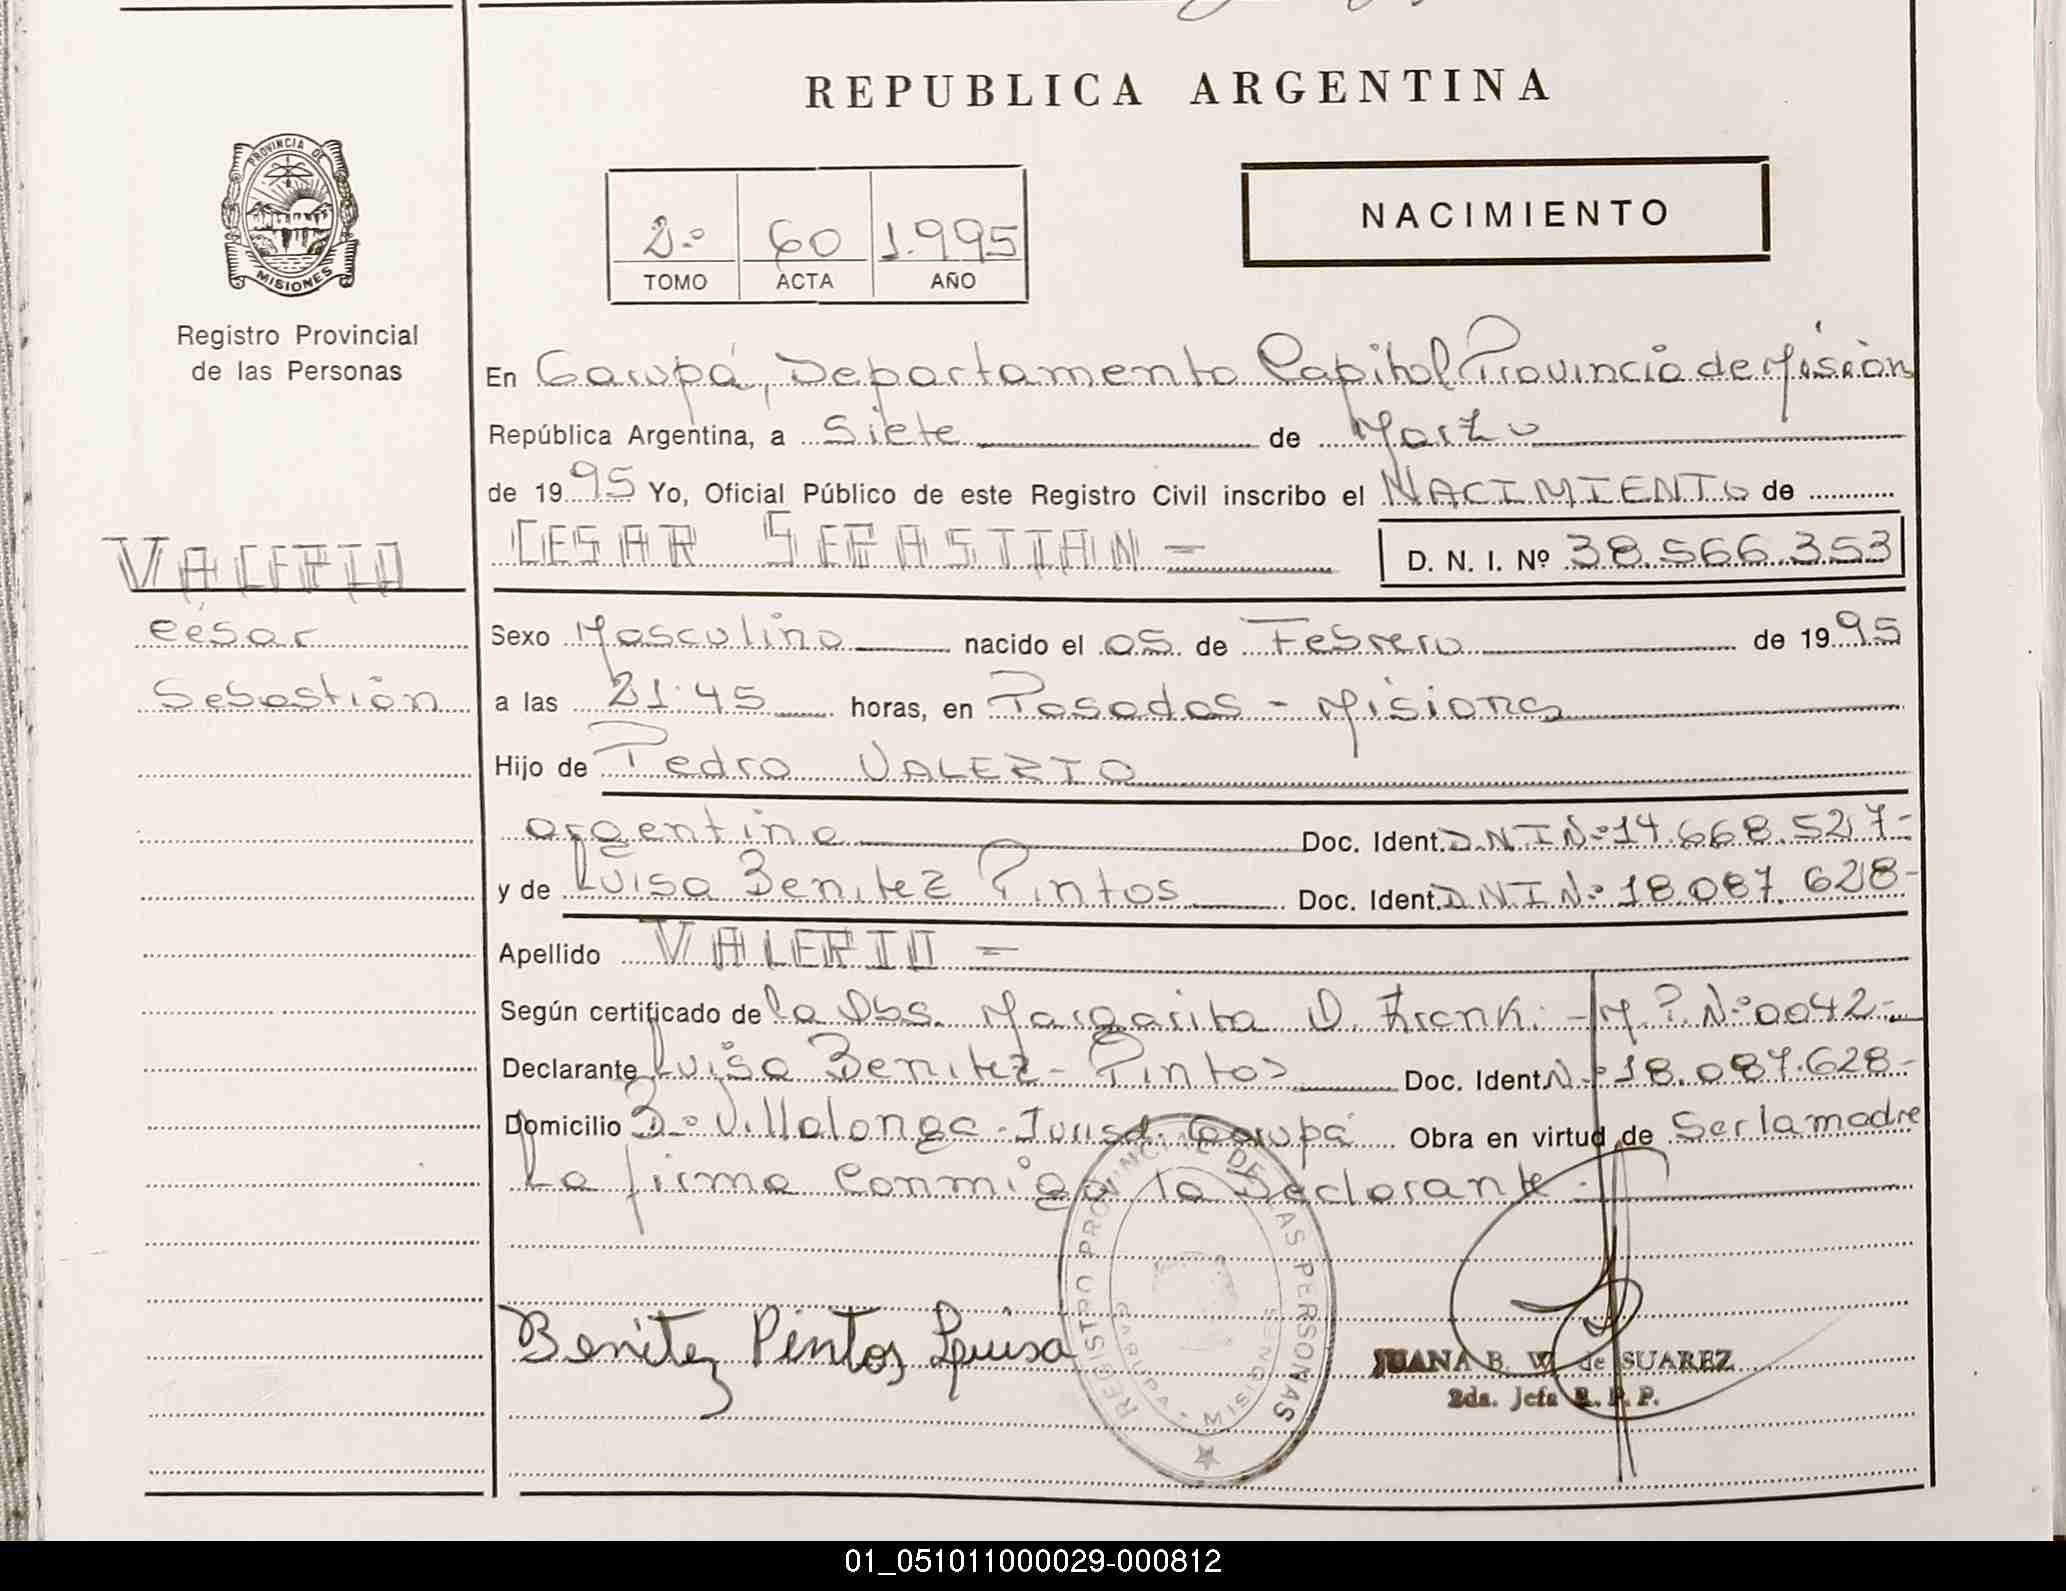 REPUBLICA ARGENTINA
PROVINCIA DE
MISIONES
Registro Provincial
de las Personas
2.º 60 1.995
TOMO ACTA AÑO
NACIMIENTO
En Garupá, Departamento Capital Provincia de Mision
República Argentina, a Siete de Marzo
de 1995 Yo, Oficial Público de este Registro Civil inscribo el NACIMIENTO de
CESAR SEBASTIAN =
D. N. I. Nº 38.566.353
VALERIO
César
Sebastián
Sexo Masculino nacido el 05 de Febrero de 1995
a las 21:45 horas, en Posadas - Misiones
Hijo de Pedro VALERIO
argentino Doc. Ident. D.N.I Nº 14.668.527-
y de Luisa Benitez Pintos Doc. Ident. D.N.I Nº 18.087.628-
Apellido VALERIO =
Según certificado de la Obs. Margarita D. - M.P. Nº 0042-
Declarante Luisa Benitez - Pintos Doc. Ident. Nº 18.087.628-
Domicilio Bº Villalonga - Jurisd. Garupá Obra en virtud de Ser la madre
La firma Conmigo la Declarante.
REGISTRO PROVINCIAL DE LAS PERSONAS
GARUPA - MISIONES
Benitez Pintos Luisa
JUANA B. W. de SUAREZ
2da. Jefa R. P. P.
01_051011000029-000812